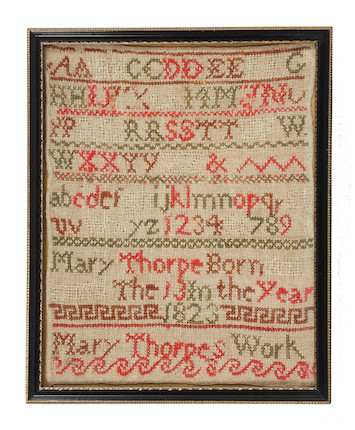 AA CCDDEE G
HHIJKK MM
PP RRSSTT W
WXXYY &
abcdef ijklmmopqr
uv yz1234 789
Mary Thorpe Born
The 13 In the Year
1823
Mary Thorpes Work